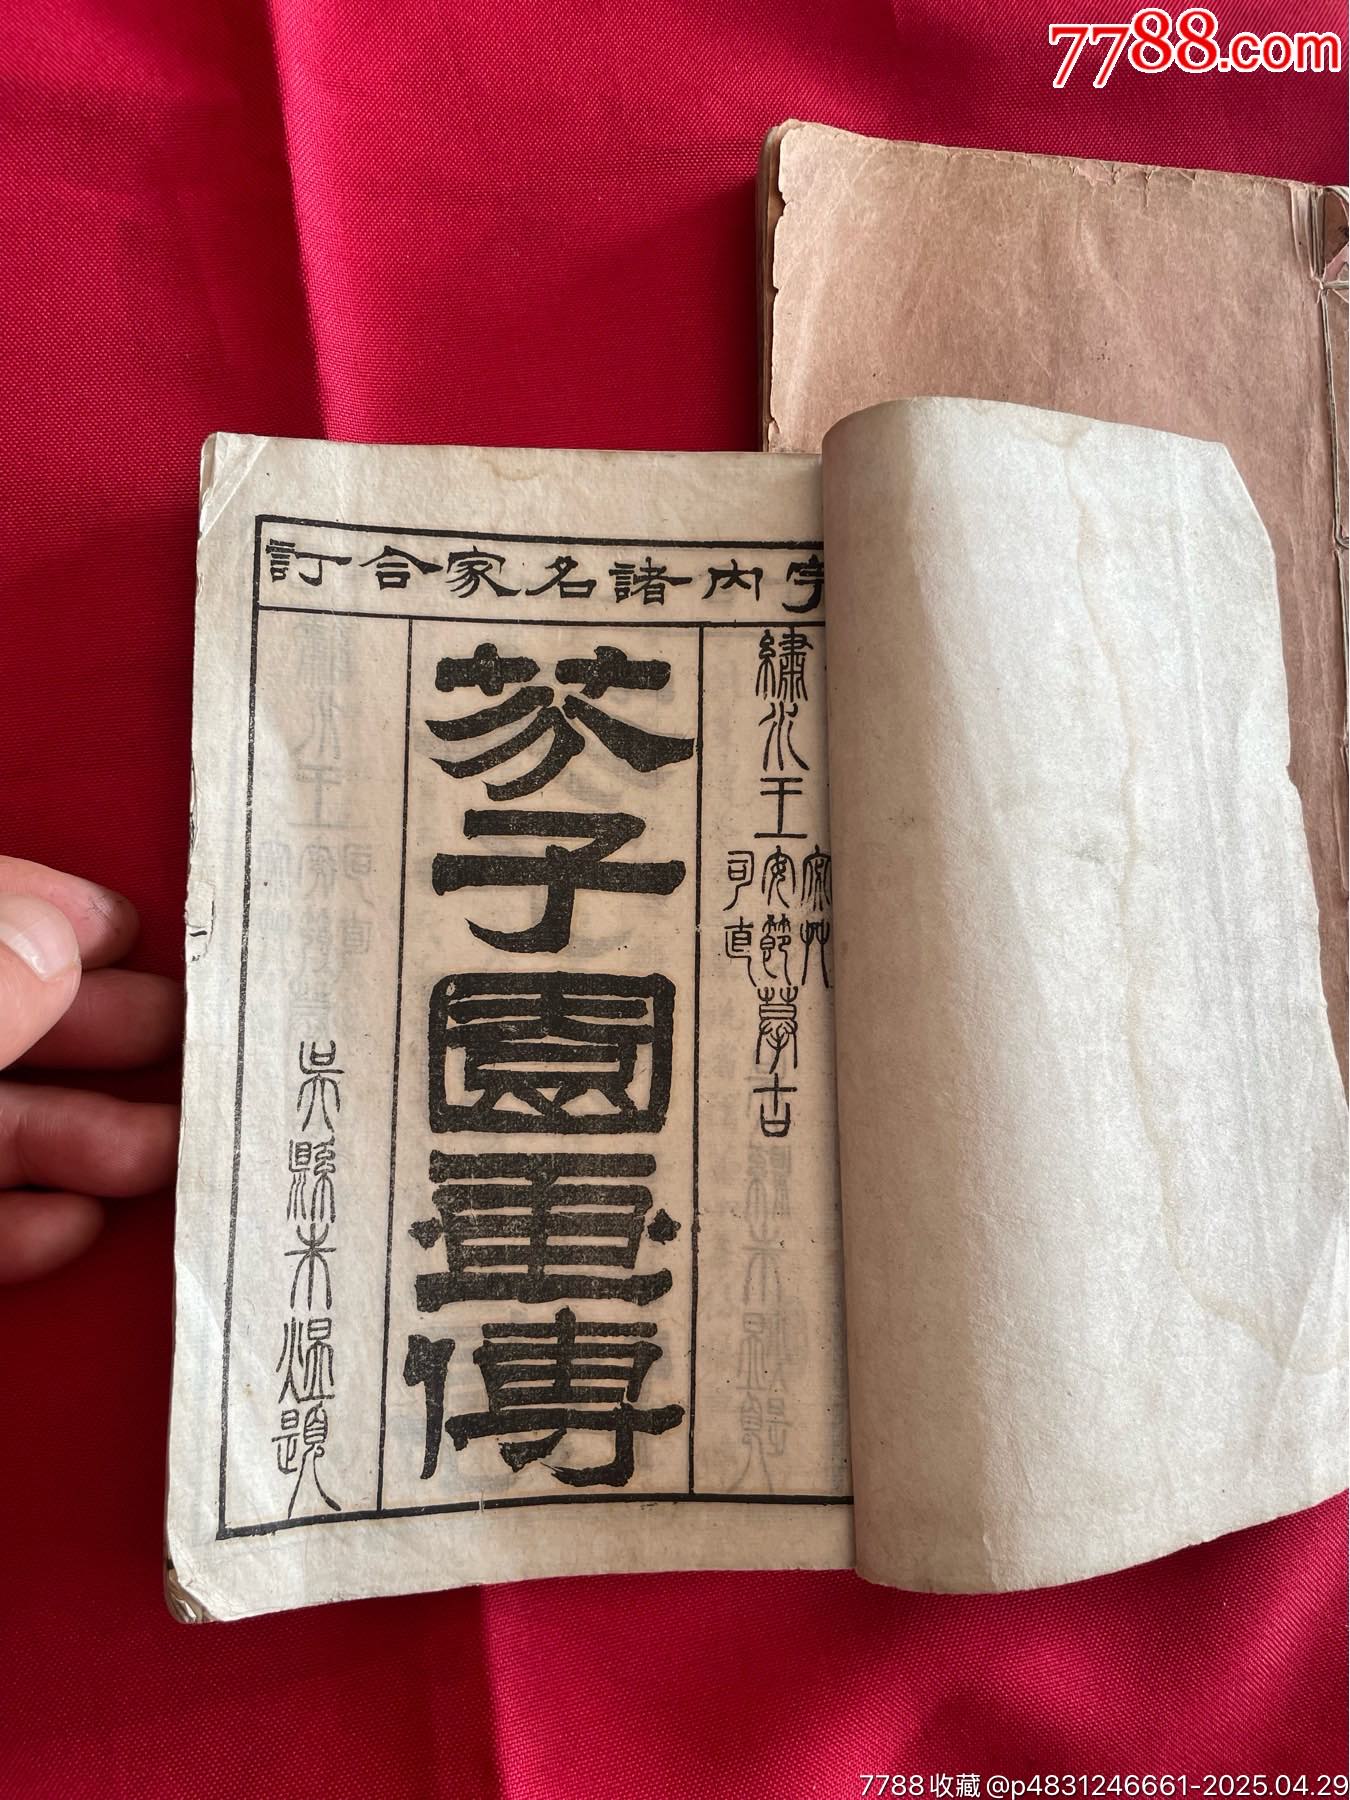 7788.com
宇內諸名家合訂
繡水王宓艸安節司直摹古
芥子園畫傳
吳縣朱煴題
一
7788收藏@p4831246661-2025.04.29